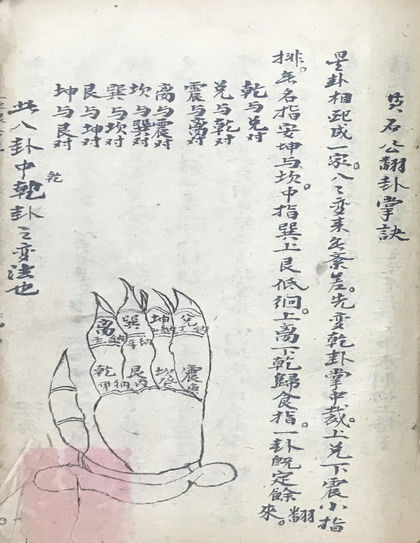 黄石公翻卦掌訣
星卦相配成一家。八八變来無紊差。先變乾卦掌中裁。上兑下震小指
排。無名指安坤与坎。中指巽上艮低徊。上离下乾歸食指。一卦既定餘翻
來。
乾与兑对
兑与乾对
震与离对
离与震对
坎与巽对
巽与坎对
艮与坤对
坤与艮对
此八卦中乾卦之变法也
乾
离 巽 坤 兑
乾 艮 坎 震